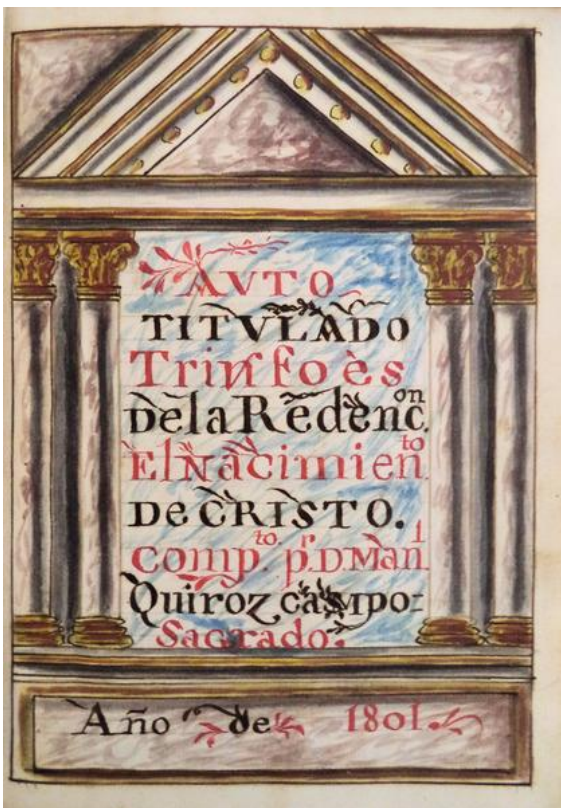 AVTO
TITVLADO
Trinfo ès
De la Redenc.on
El Nacimien.to
De CRISTO.
Comp.to p.r D. Man.l
Quiroz campo=
Sagrado.
Año de 1801.